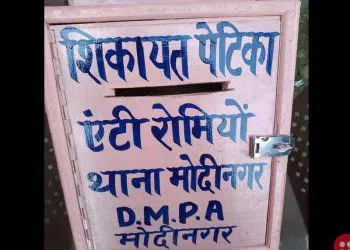 शिकायत पेटिका
एंटी रोमियों
थाना मोदीनगर
D.M.P.A
मोदीनगर